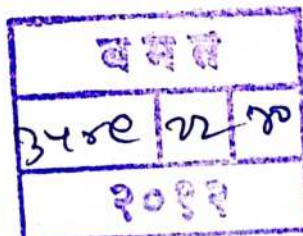 व म त
३५४९ २२ ४०
२०१२